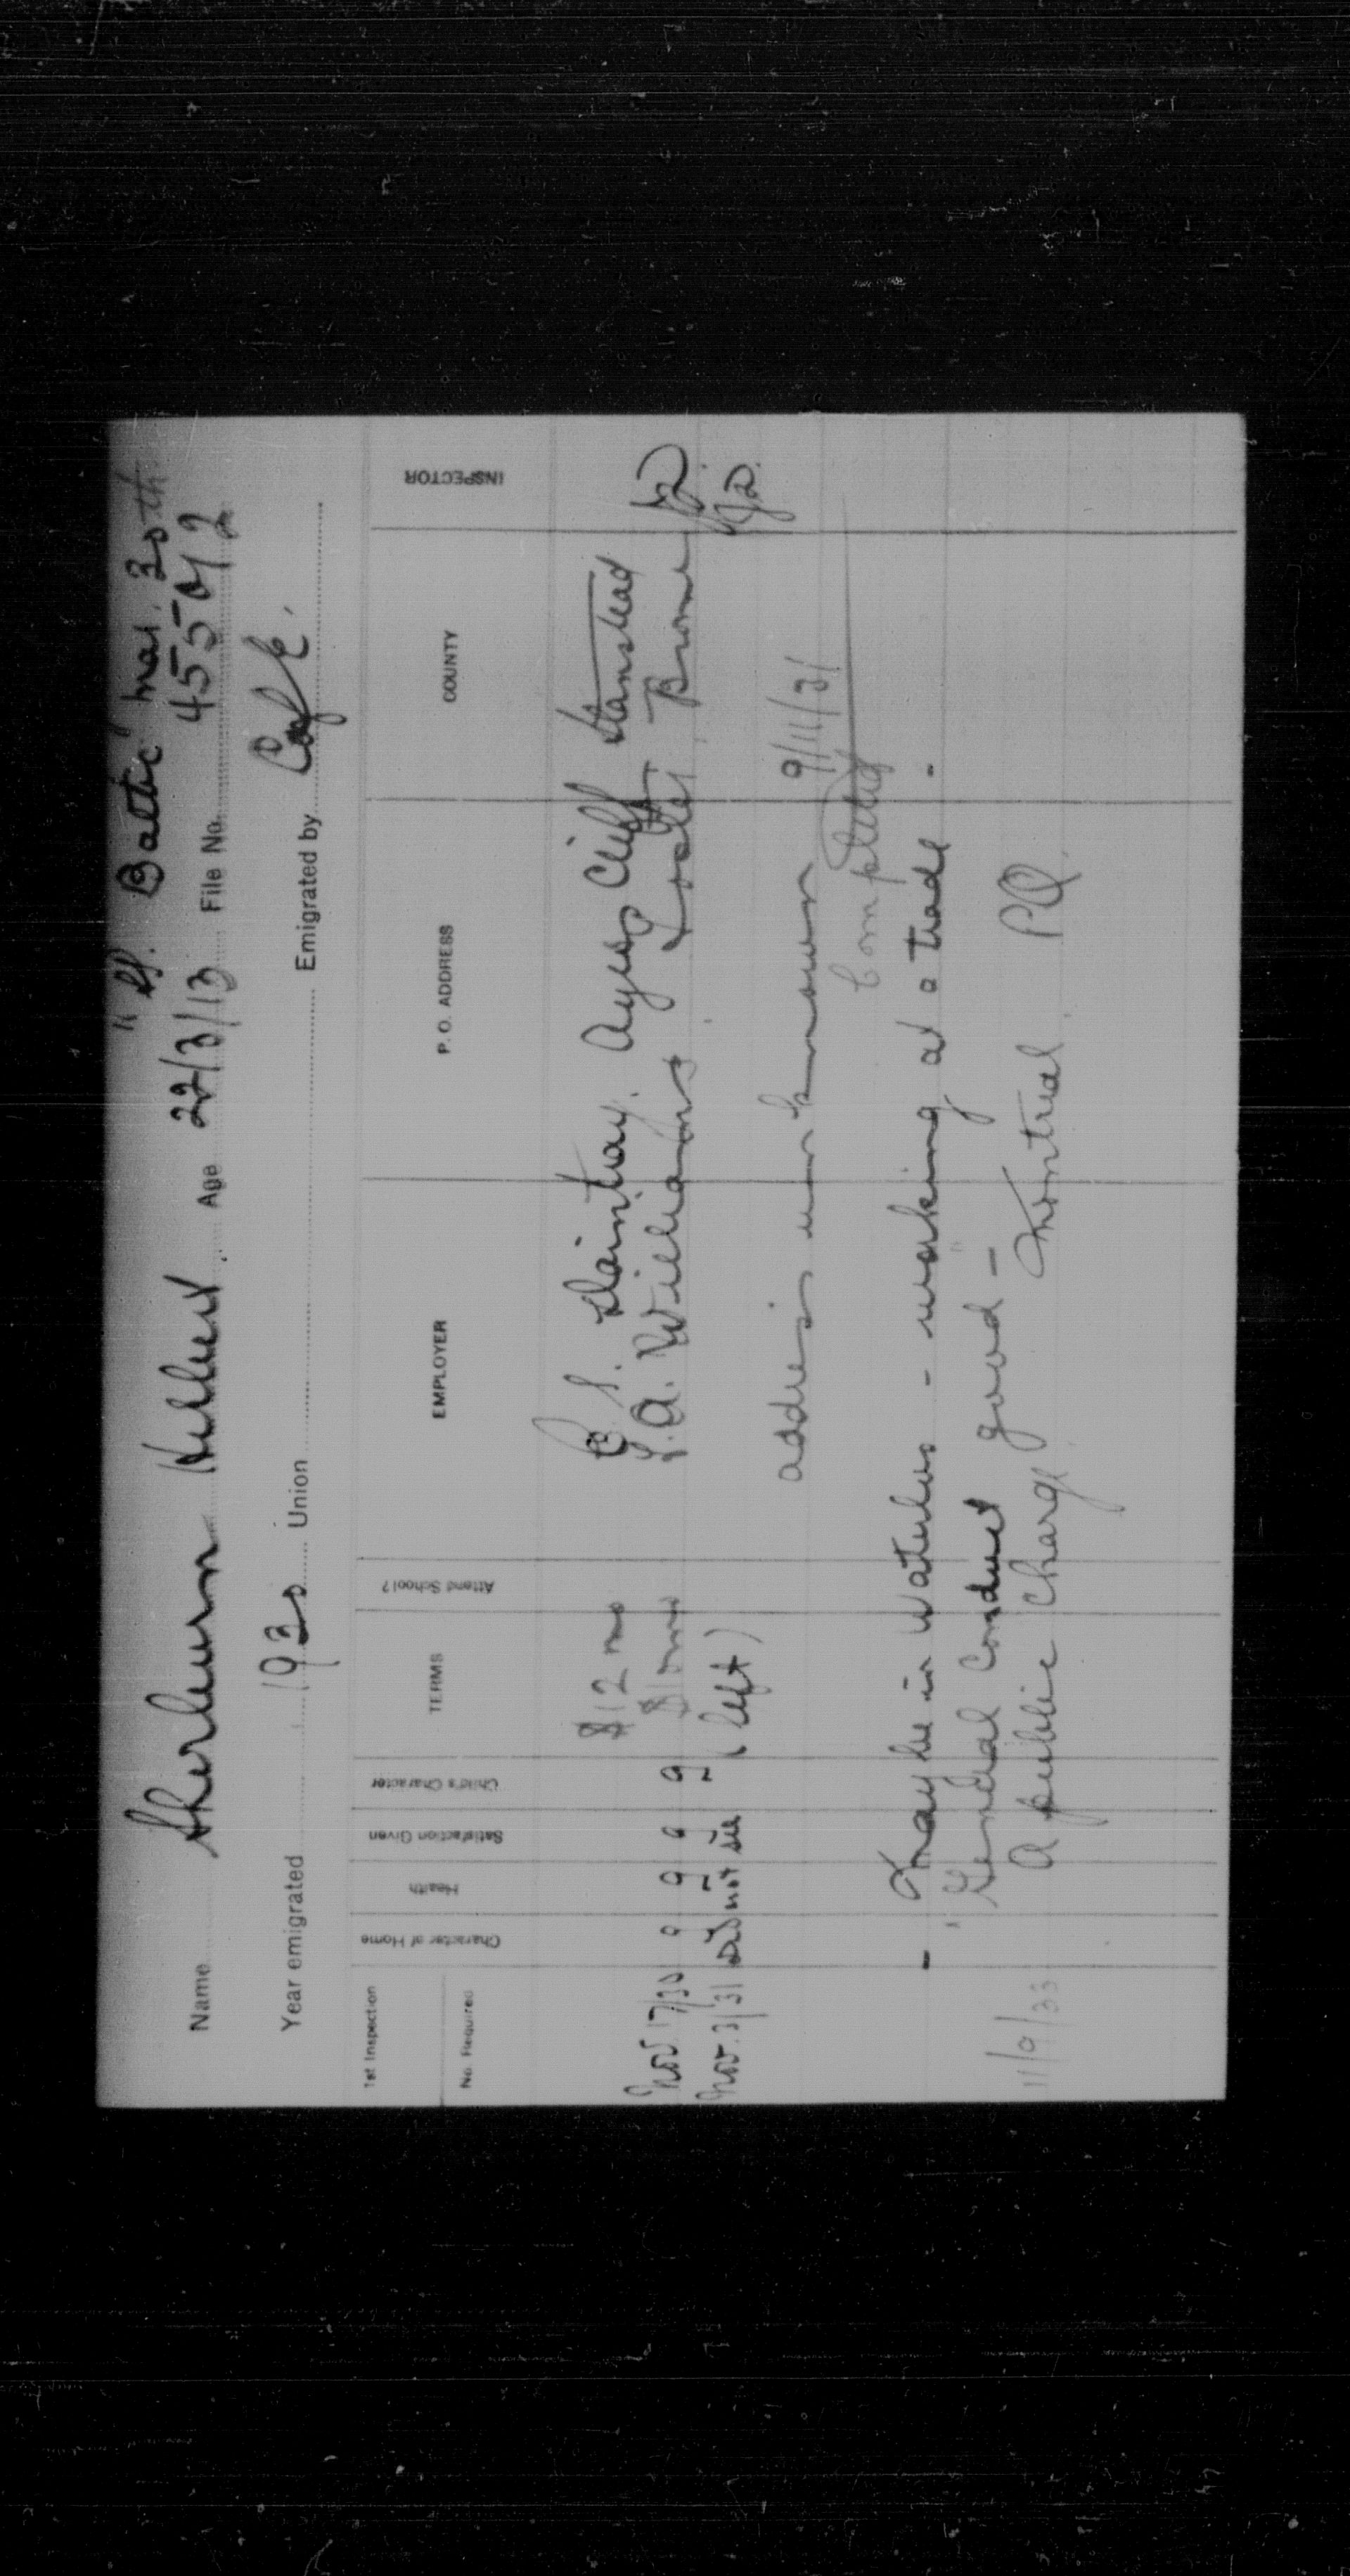 "Sf. Baltic" Mar. 30th
Name Sherburn Herbert. Age 22/3/13 File No. 455042
Year emigrated 1930 Union Emigrated by C of E.
1st Inspection
No. Required
Character of Home Health Satisfaction Given Child's Character TERMS Attend School? EMPLOYER P. O. ADDRESS COUNTY INSPECTOR
$12 mo Ayers Cliff Stanstead
Nov. 17/30 g g g g $10 mo Williams Brome
Nov. 3/31 Did not see (left)
address unknown 9/11/31
Completed
- May be in Waterloo - working at a trade -
General Conduct good -
11/9/33 A public Charge. Montreal. PQ.